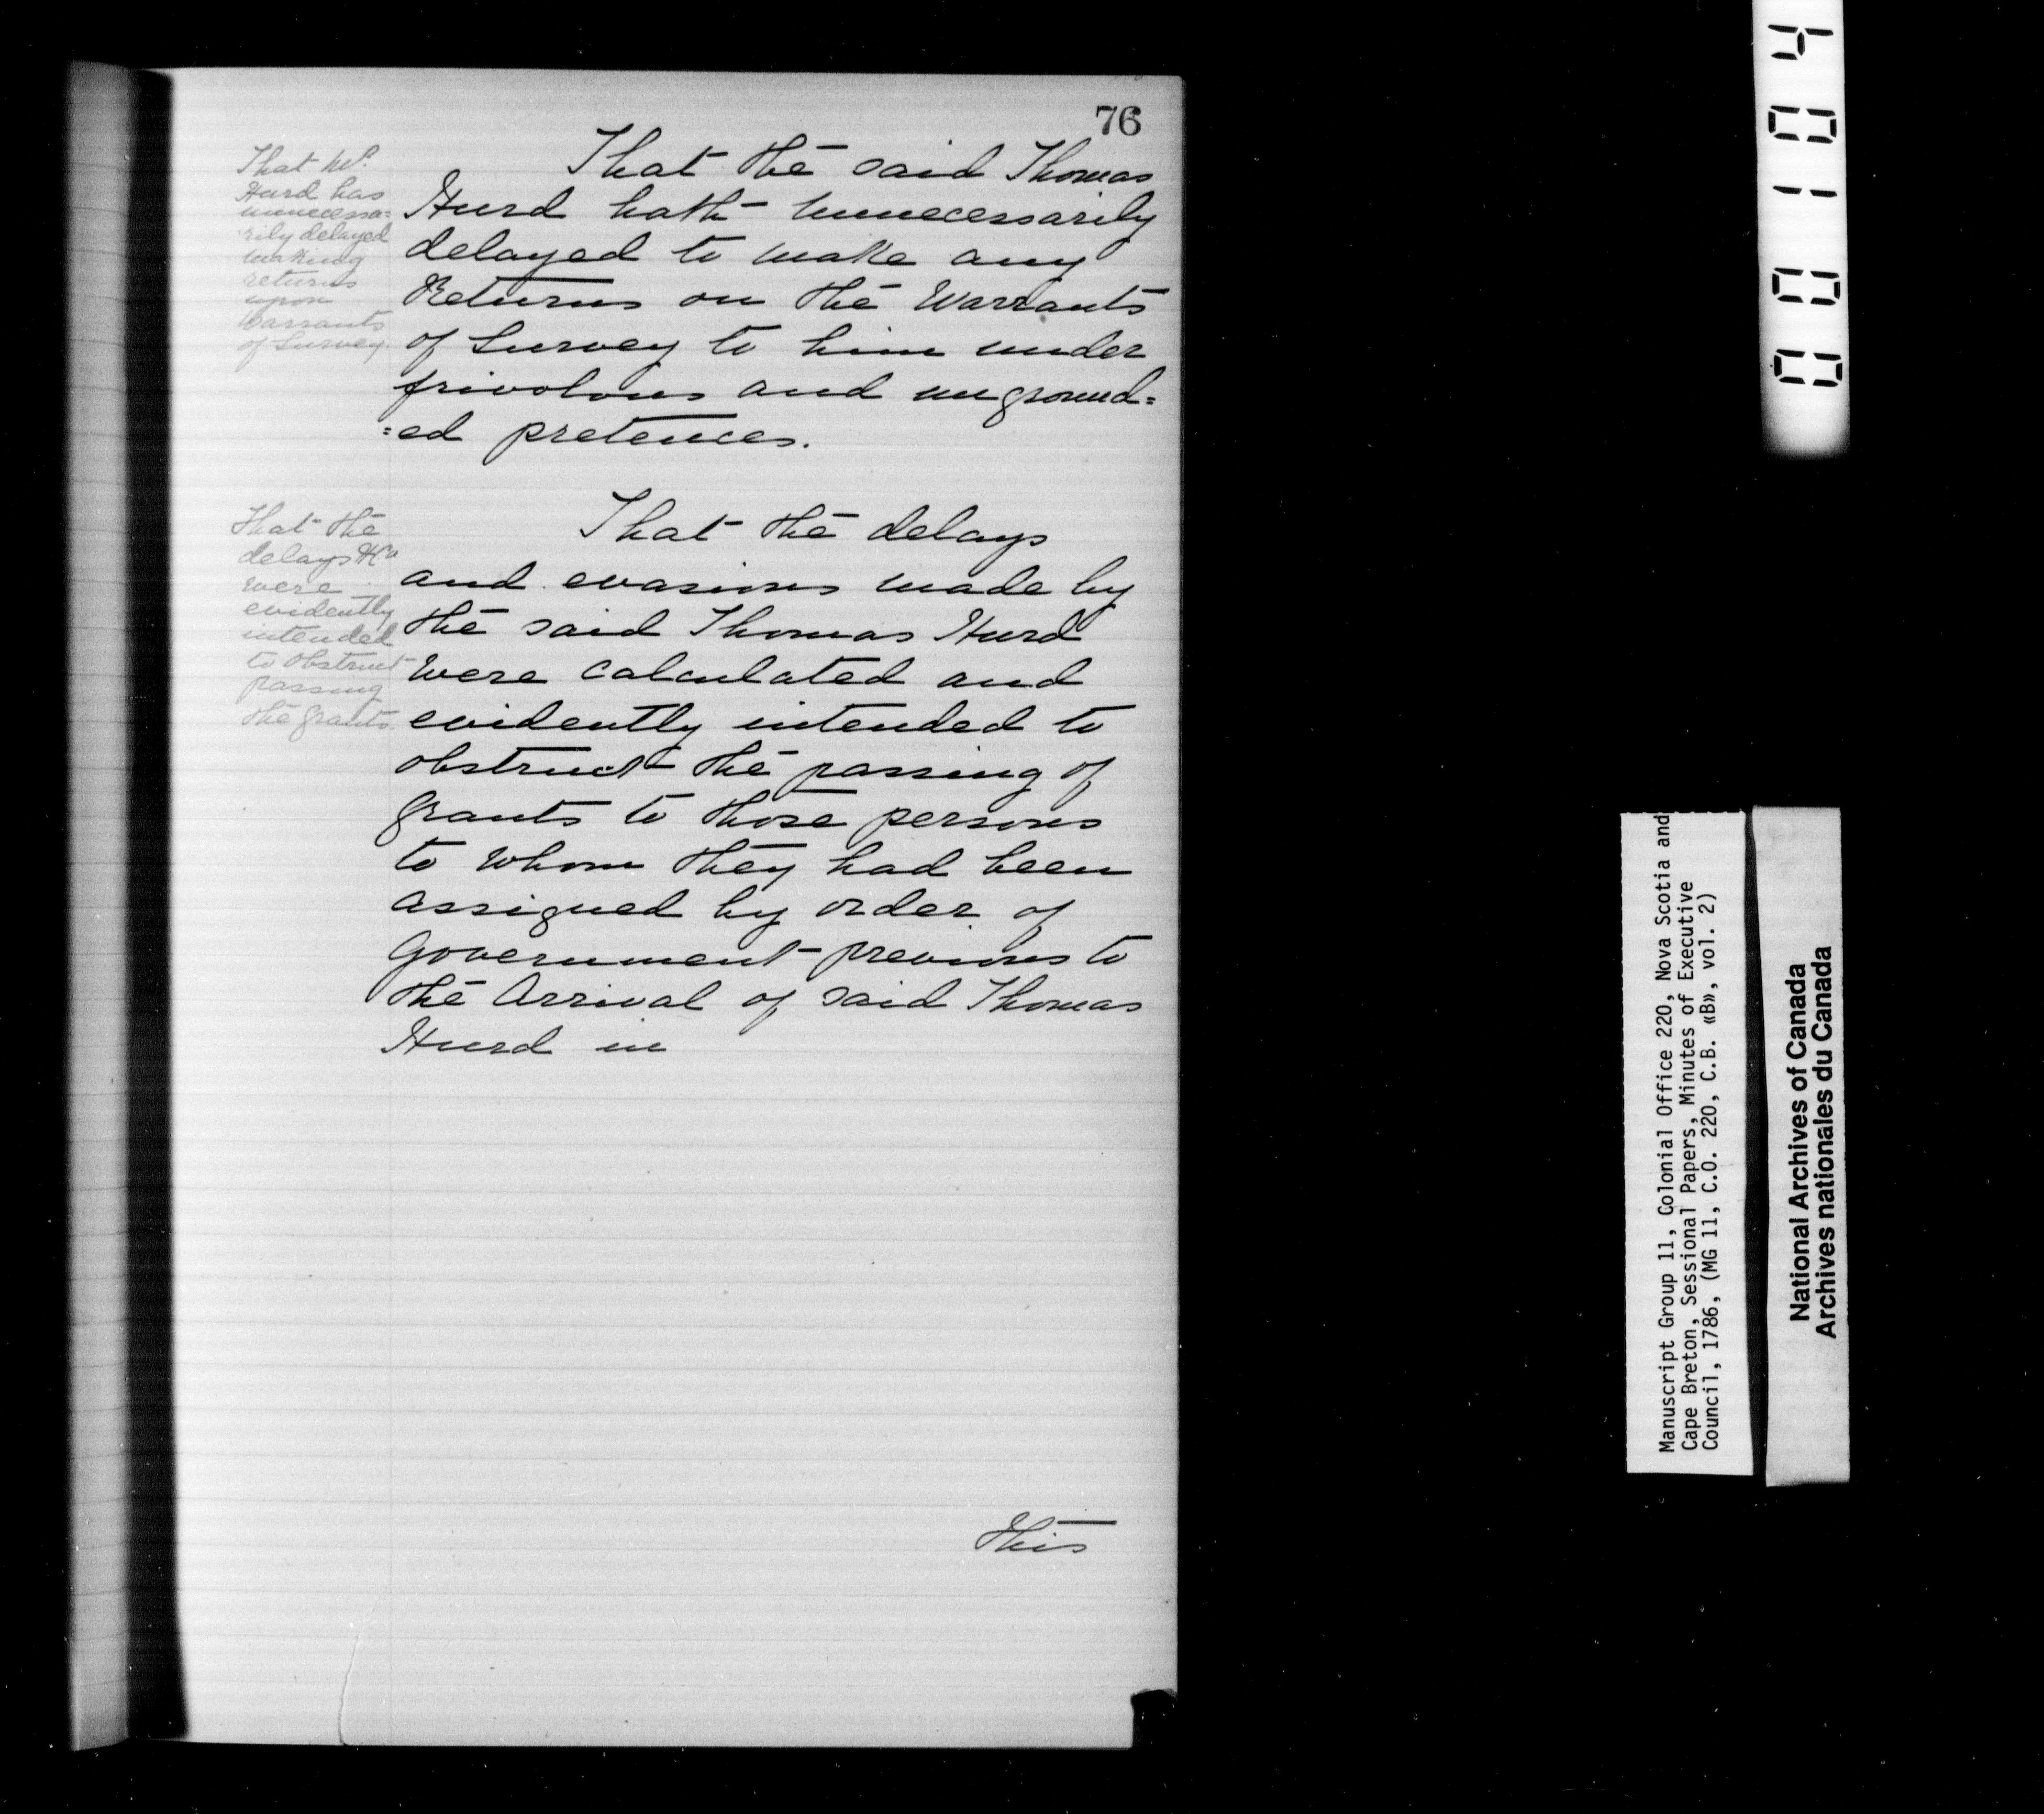 76
That Mr.
Hurd has
unnecessa=
rily delayed
making
returns
upon
Warrants
of Survey.
That the said Thomas
Hurd hath unnecessarily
delayed to make any
Returns on the Warrants
of Survey to him under
frivolous and unground=
=ed pretences.
That the
delays &ca
were
evidently
intended
to obstruct
passing
the grants.
That the delays
and evasions made by
the said Thomas Hurd
were calculated and
evidently intended to
obstruct the passing of
grants to those persons
to whom they had been
assigned by order of
Government previous to
the Arrival of said Thomas
Hurd in
This
00104
Manuscript Group 11, Colonial Office 220, Nova Scotia and
Cape Breton, Sessional Papers, Minutes of Executive
Council, 1786, (MG 11, C.O. 220, C.B. «B», vol. 2)
National Archives of Canada
Archives nationales du Canada